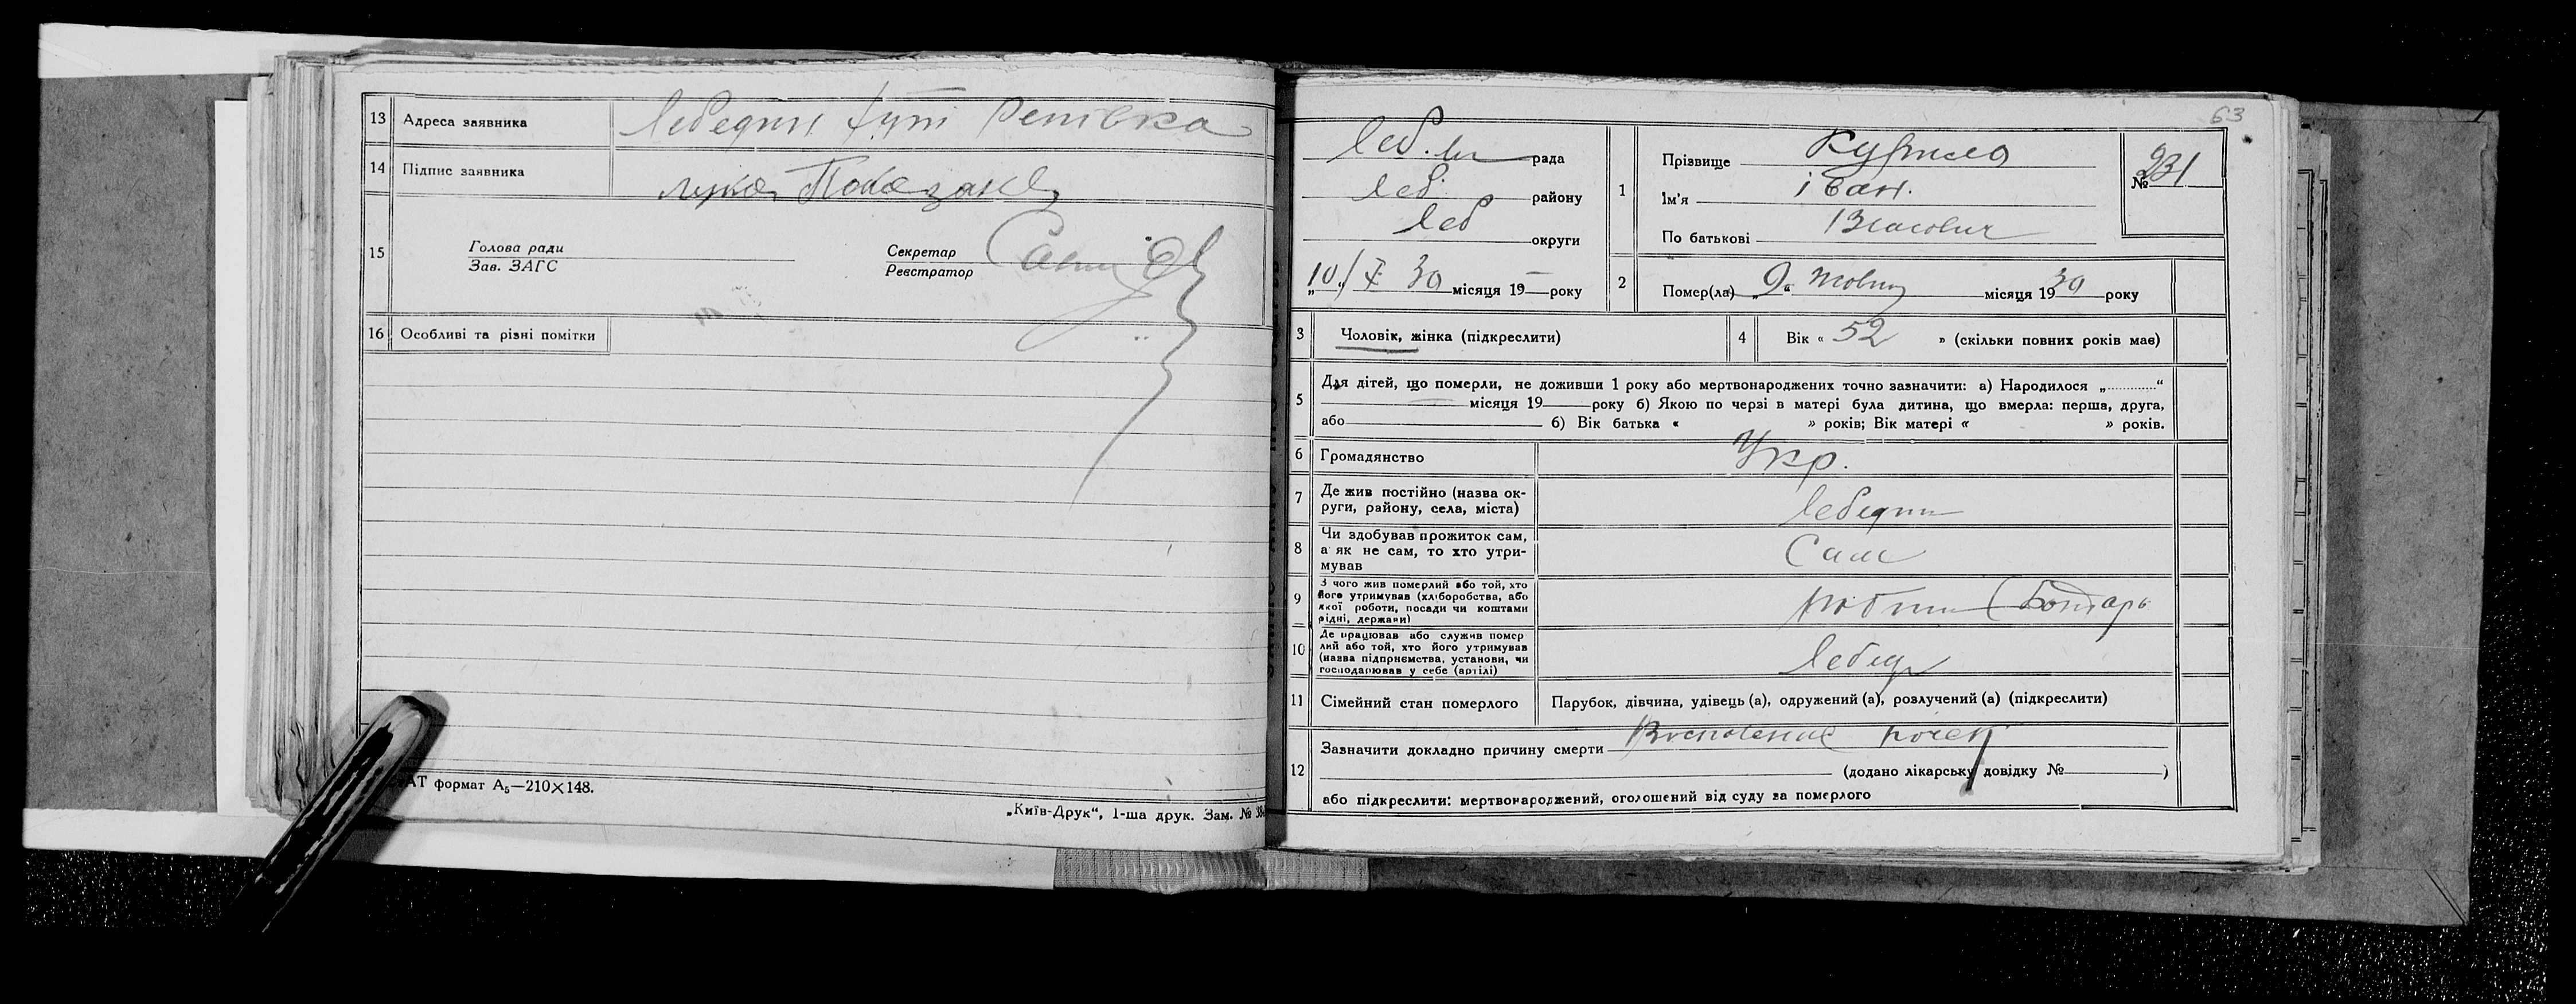 13 Адреса заявника Лебедин
14 Підпис заявника Лука
15 Голова ради
Зав. ЗАГС
Секретар
Реєстратор
16 Особливі та різні помітки
АТ формат А₅—210×148.
„Київ-Друк“, 1-ша друк. Зам. №
63
Леб. рада
Леб. району
Леб округи
„10“/X 30 місяця 19—року
1 Прізвище Курило
Ім'я Іван.
По батькові Власович
№ 231
2 Помер(ла) „9“ жовтн місяця 1930 року
3 Чоловік, жінка (підкреслити)
4 Вік « 52 » (скільки повних років мав)
5 Для дітей, що померли, не доживши 1 року або мертвонароджених точно зазначити: а) Народилося „............“
місяця 19——року б) Якою по черзі в матері була дитина, що вмерла: перша, друга,
або б) Вік батька « » років; Вік матері « » років.
6 Громадянство Укр.
7 Де жив постійно (назва ок-
руги, району, села, міста) Лебедин
8 Чи здобував прожиток сам,
а як не сам, то хто утри-
мував Сам
9 З чого жив померлий або той, хто
його утримував (хліборобства, або
якої роботи, посади чи коштами
рідні, держави) (Бондарь
10 Де працював або служив помер
лий або той, хто його утримував
(назва підприємства, установи, чи
господарював у себе (артілі) Лебед
11 Сімейний стан померлого Парубок, дівчина, удівець (а), одружений (а), розлучений (а) (підкреслити)
12 Зазначити докладно причину смерти Воспаление почек
(додано лікарську довідку №——)
або підкреслити: мертвонароджений, оголошений від суду за померлого